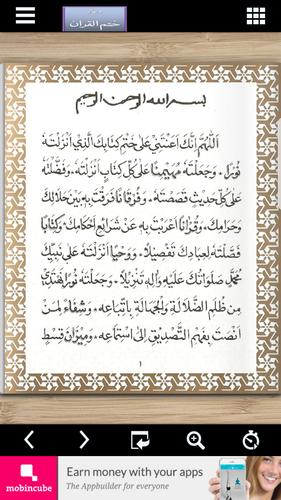 ختم القرآن
بسم الله الرحمن الرحيم
اَللّٰهُمَّ اِنَّكَ اَعَنْتَنِيْ عَلٰى خَتْمِ كِتَابِكَ الَّذِيْ اَنْزَلْتَهُ
نُوْرًا ۔ وَجَعَلْتَهُ مُهَيْمِنًا عَلٰى كُلِّ كِتَابٍ اَنْزَلْتَهُ ۔ وَفَضَّلْتَهُ
عَلٰى كُلِّ حَدِيْثٍ قَصَصْتَهُ ۔ وَفُرْقَانًا فَرَقْتَ بِهِ بَيْنَ حَلَالِكَ
وَحَرَامِكَ ۔ وَقُرْاٰنًا اَعْرَبْتَ بِهِ عَنْ شَرَائِعِ اَحْكَامِكَ ۔ وَكِتَابًا
فَصَّلْتَهُ لِعِبَادِكَ تَفْصِيْلًا ۔ وَوَحْيًا اَنْزَلْتَهُ عَلٰى نَبِيِّكَ
مُحَمَّدٍ صَلَوَاتُكَ عَلَيْهِ وَاٰلِهِ تَنْزِيْلًا ۔ وَجَعَلْتَهُ نُوْرًا نَهْتَدِيْ
مِنْ ظُلَمِ الضَّلَالَةِ وَالْجَهَالَةِ بِاتِّبَاعِهِ ۔ وَشِفَاءً لِمَنْ
اَنْصَتَ بِفَهْمِ التَّصْدِيْقِ اِلٰى اسْتِمَاعِهِ ۔ وَمِيْزَانَ قِسْطٍ
١
mobincube
Earn money with your apps
The Appbuilder for everyone